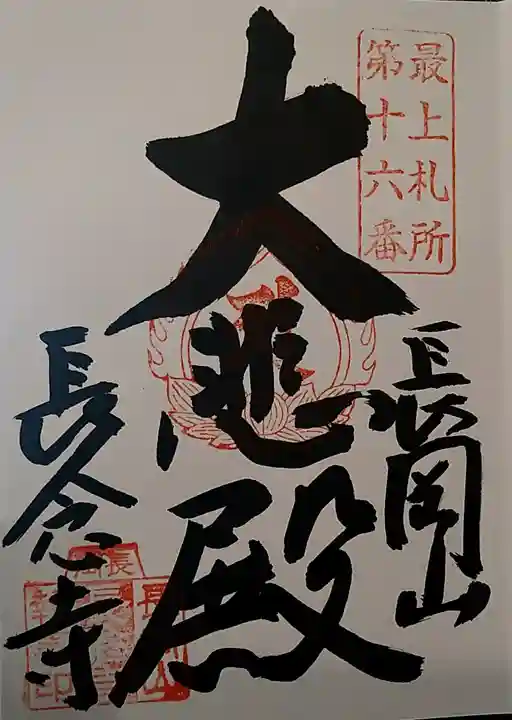 最上札所
第十六番
長岡山
大悲殿
長念寺